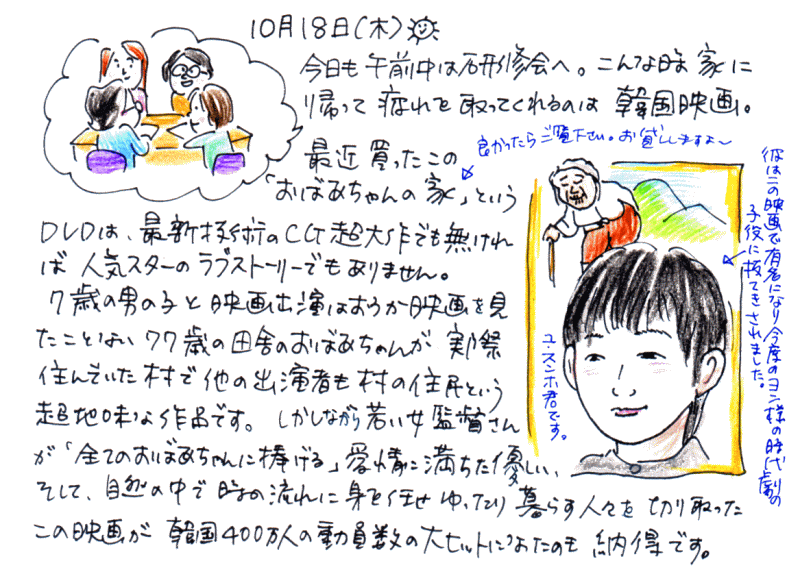 10月18日(木)
今日も午前中は研修会へ。こんな時 家に
帰って 疲れを 取ってくれるのは 韓国映画。
良かったらご覧下さい。お貸ししますよ〜
最近 買ったこの
「おばあちゃんの家」という
DVDは、最新技術のCG超大作でも無けれ
ば 人気スターのラブストーリーでもありません。
7歳の男の子と 映画出演はおろか映画を見
たことない 77歳の田舎のおばあちゃんが 実祭
住んでいた村で他の出演者も村の住民という
超地味な作品です。しかしながら若い女監督さん
が「全てのおばあちゃんに捧げる」愛情に満ちた優しい、
そして、自然の中で時の流れに身を任せ ゆったり 暮らす人々を 切り取った
この映画が 韓国400万人の動員数の大ヒットになったのも 納得です。
彼はこの映画で有名になり今度のヨン様の時代劇の
子役に抜てきされました。
ユ・スンホ君です。